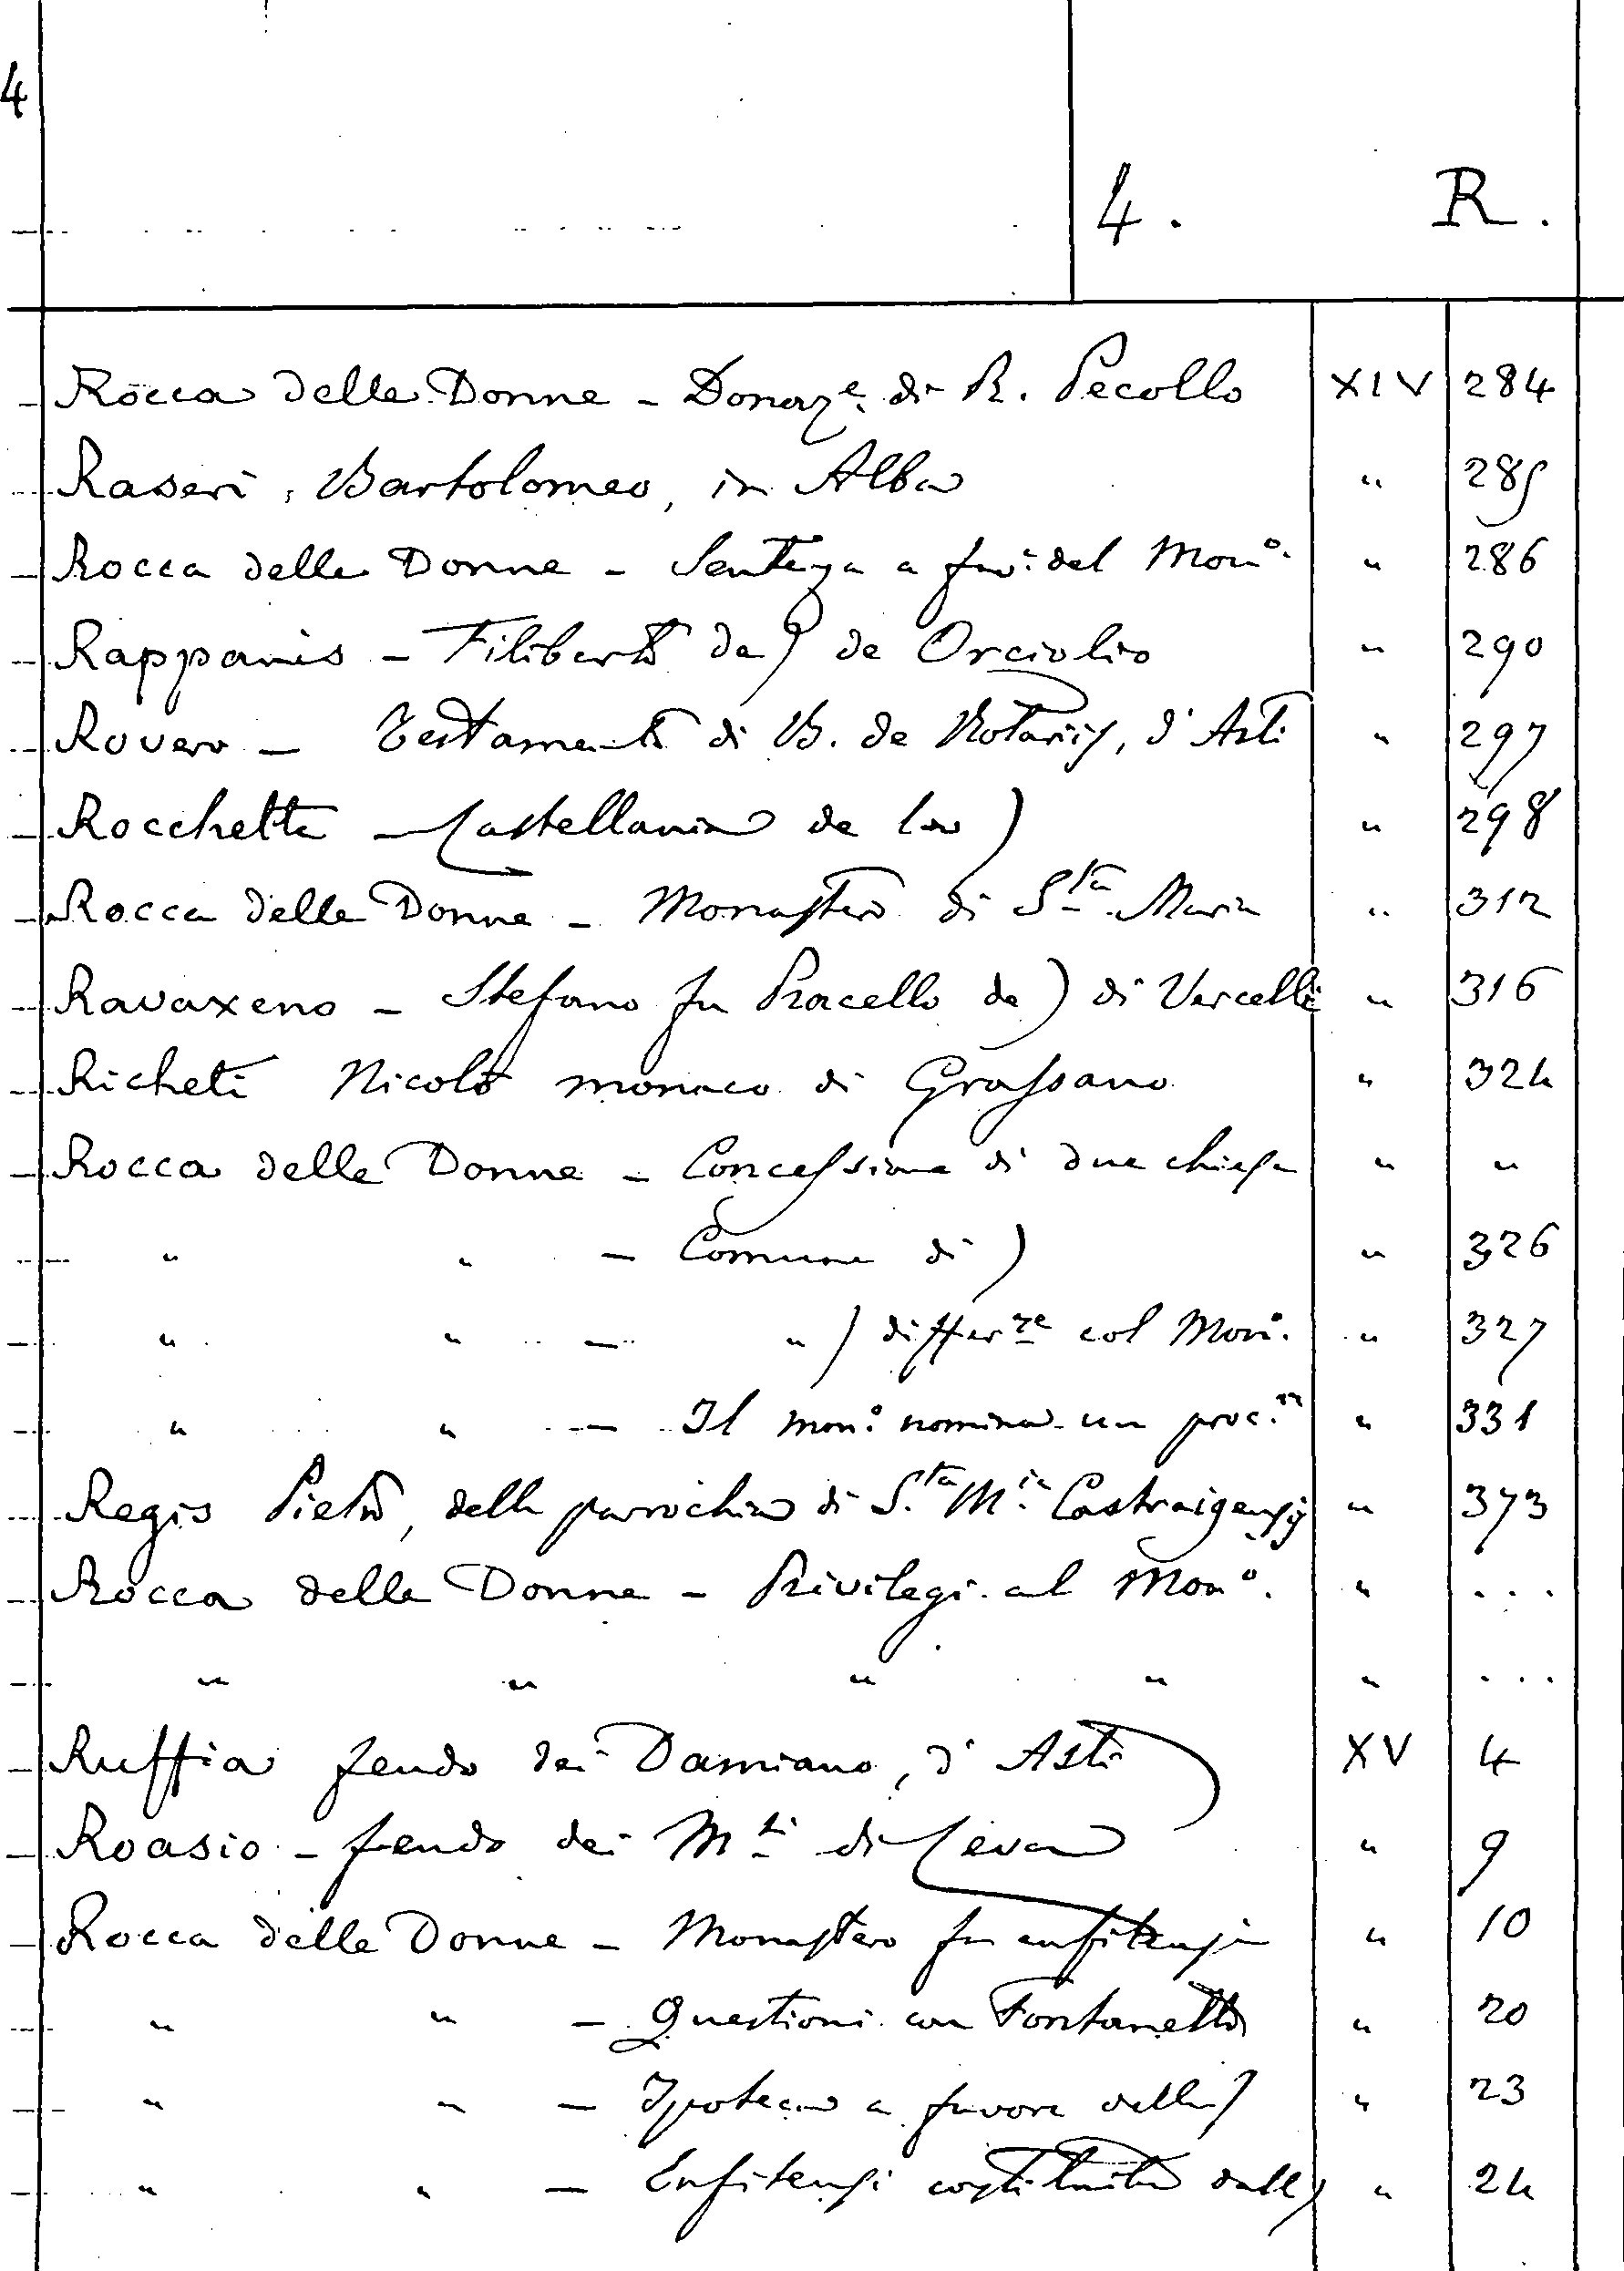 4
4. R.
Rocca delle Donne - Donaz.e di R. Pecollo XIV 284
Raseri, Bartolomeo, in Alba " 285
Rocca delle Donne - Sentenza a fav: del Mon.o " 286
Rappanis - Filiberto de) de Orciolio " 290
Rovero - Testamento di B. de Rotariis, d'Asti " 297
Rocchetta - Castellania de la) " 298
Rocca delle Donne - Monastero di S.ta Maria " 312
Ravaxeno - Stefano fu Pracello de) di Vercelli " 316
Richeti Nicolò monaco di Grassano " 324
Rocca delle Donne - Concessione di due chiese " "
" " - Comune di) " 326
" " - " ) differ.ze col Mon.o " 327
" " - Il mon.o nomina un proc.re " 331
Regis Pietro, della parrochia di S.ta M.ia " 373
Rocca delle Donne - Privilegi al Mon.o " ...
" " " " " ...
Ruffia feudo dei Damiano, d'Asti XV 4
Roasio - feudo dei M.si di Ceva " 9
Rocca delle Donne - Monastero fa enfiteusi " 10
" " - Questioni con Fontanetto " 20
" " - Ipoteca a favore della) " 23
" " - Enfiteusi costituita dalla) " 24